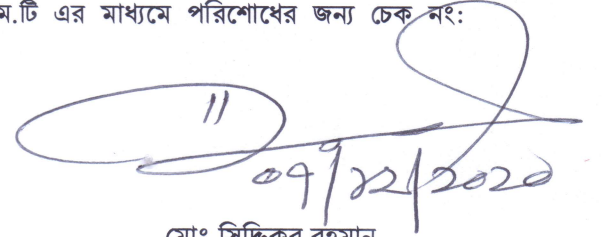 ম.টি এর মাধ্যমে পরিশোধের জন্য চেক নং:
০৭/১২/২০২০
মোঃ সিদ্দিকুর রহমান